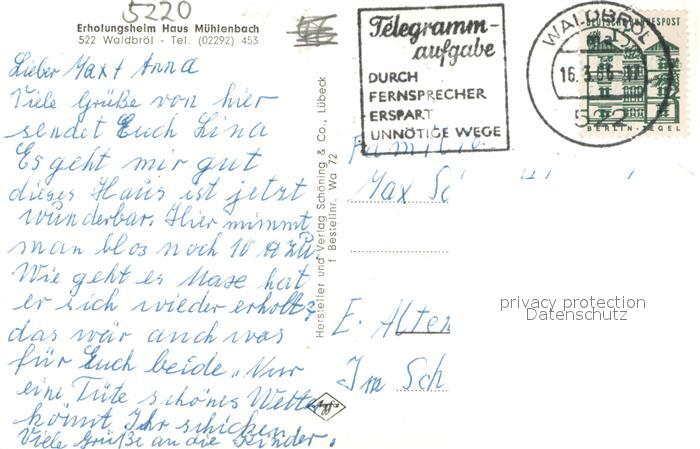 5220
Erholungsheim Haus Mühlenbach
522 Waldbröl - Tel. (02292) 453
Lieber Max + Anna
Viele Grüße von hier
sendet Euch Lina
Es geht mir gut
dieses Haus ist jetzt
wunderbar. Hier nimmt
man blos noch 10 M zu
Wie geht es Maxe hat
er sich wieder erholt?
das wär auch was
für Euch beide. Nur
eine Tüte schönes Wetter
könnt Ihr schicken
Viele Grüße an die Kinder.
Hersteller und Verlag Schöning & Co., Lübeck
Bestellnr. Wa 72
Agfa
Telegramm-
aufgabe
DURCH
FERNSPRECHER
ERSPART
UNNÖTIGE WEGE
WALDBRÖL
16.3.66
522
DEUTSCHE BUNDESPOST
BERLIN-TEGEL
Familie
Max Sc
E. Alten
Im Sch
privacy protection
Datenschutz